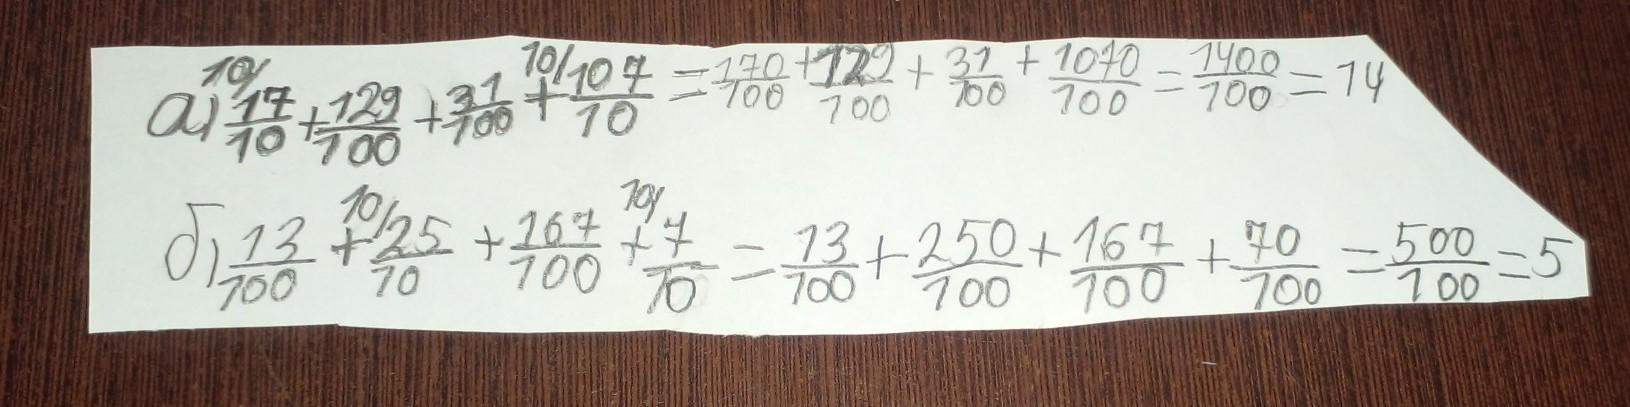 а) 10/ 17/10 + 129/100 + 31/100 + 10/ 107/10 = 170/100 + 129/100 + 31/100 + 1070/100 = 1400/100 = 14
б) 13/100 + 10/ 25/10 + 167/100 + 10/ 7/10 = 13/100 + 250/100 + 167/100 + 70/100 = 500/100 = 5